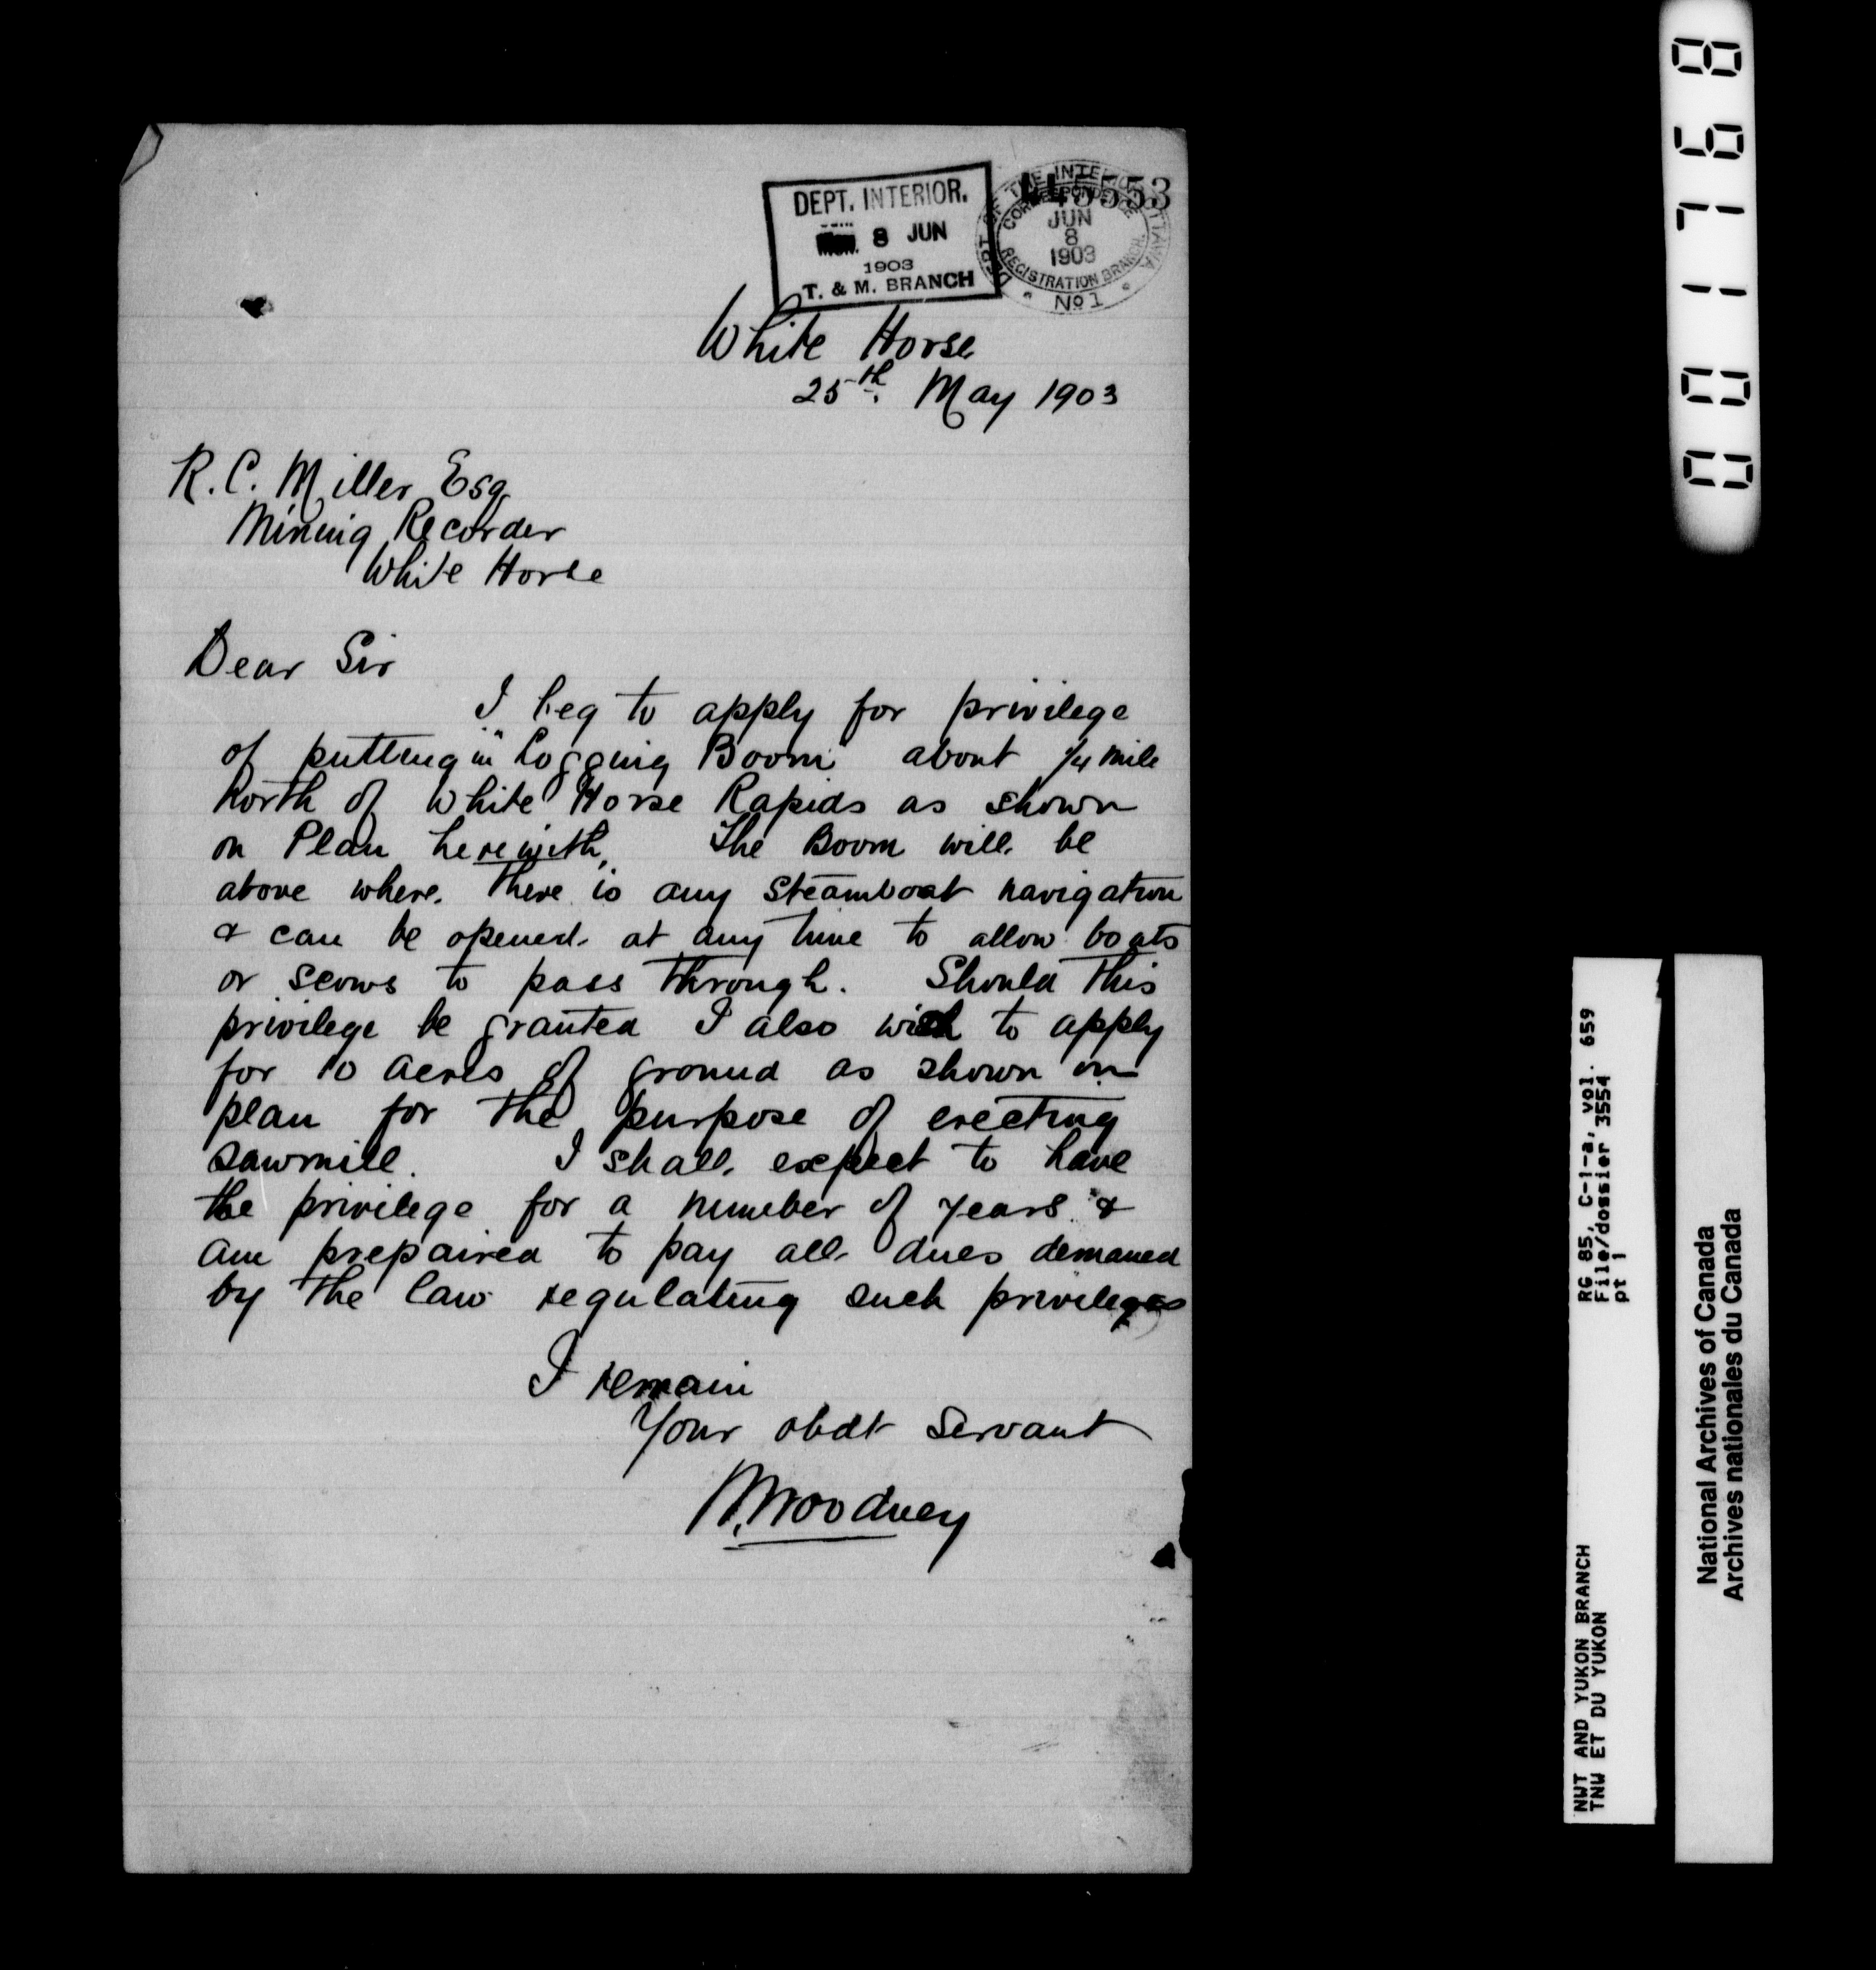 DEPT. INTERIOR.
8 JUN
1903
T. & M. BRANCH
DEPT OF THE INTERIOR OTTAWA
CORRESPONDENCE
JUN
8
1903
REGISTRATION BRANCH.
No 1
White Horse
25th May 1903
R. C. Miller Esq
Mining Recorder
White Horse
Dear Sir
I beg to apply for privilege
of putting in "Logging Boom" about 1/4 mile
North of White Horse Rapids as shown
on Plan herewith, The Boom will be
above where there is any steamboat navigation
& can be opened at any time to allow boats
or scows to pass through. Should this
privilege be granted I also wish to apply
for 10 acres of ground as shown on
plan for the purpose of erecting
sawmill. I shall expect to have
the privilege for a number of years &
am prepaired to pay all dues demaned
by the law regulating such privileges
I remain
Your obdt servant
00117698
RG 85, C-1-a, vol. 659
File/dossier 3554
pt 1
NWT AND YUKON BRANCH
TNW ET DU YUKON
National Archives of Canada
Archives nationales du Canada